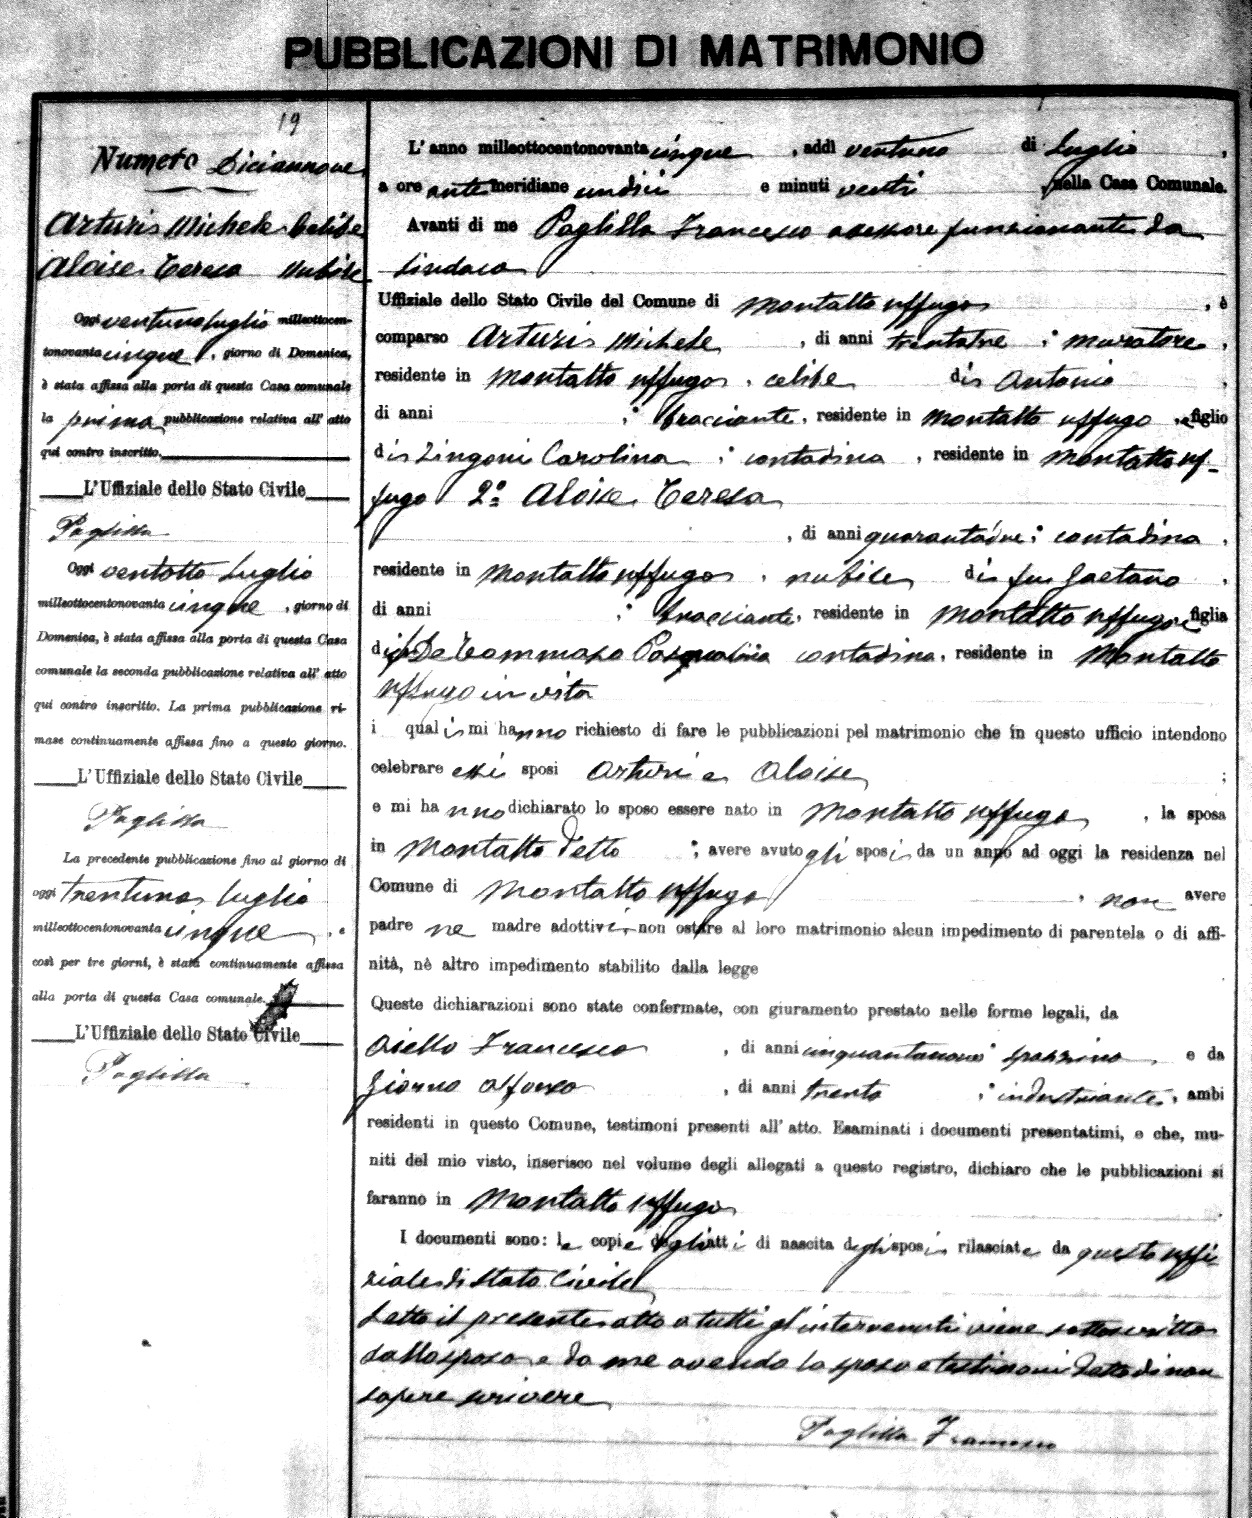 PUBBLICAZIONI DI MATRIMONIO
19
Numero Diciannove
Arturi Michele celibe
Aloise Teresa nubile
Oggi ventuno luglio milleottocen-
tonovanta cinque, giorno di Domenica,
è stata affissa alla porta di questa Casa comunale
la prima pubblicazione relativa all' atto
qui contro inscritto.
L'Uffiziale dello Stato Civile
Paglilla
Oggi ventotto luglio
milleottocentonovanta cinque, giorno di
Domenica, è stata affissa alla porta di questa Casa
comunale la seconda pubblicazione relativa all' atto
qui contro inscritto. La prima pubblicazione ri-
mase continuamente affissa fino a questo giorno.
L'Uffiziale dello Stato Civile
Paglilla
La precedente pubblicazione fino al giorno di
oggi trentuno luglio
milleottocentonovanta cinque, e
così per tre giorni, è stata continuamente affissa
alla porta di questa Casa comunale.
L'Uffiziale dello Stato Civile
Paglilla
L' anno milleottocentonovanta cinque, addì ventuno di Luglio,
a ore antemeridiane undici e minuti venti, nella Casa Comunale.
Avanti di me Paglilla Francesco assessore funzionante da
sindaco
Uffiziale dello Stato Civile del Comune di Montalto Uffugo, è
comparso Arturi Michele, di anni trentatre; muratore,
residente in Montalto Uffugo, celibe di Antonio,
di anni ; bracciante, residente in Montalto Uffugo, e figlio
di Zingoni Carolina; contadina, residente in Montalto Uf-
fugo 2º Aloise Teresa
, di anni quarantadue; contadina,
residente in Montalto Uffugo, nubile di fu Gaetano,
di anni ; bracciante, residente in Montalto Uffugo e figlia
di De Tommaso Pasqualina contadina, residente in Montalto
Uffugo in vita
i quali mi hanno richiesto di fare le pubblicazioni pel matrimonio che in questo ufficio intendono
celebrare essi sposi Arturi e Aloise;
e mi hanno dichiarato lo sposo essere nato in Montalto Uffugo, la sposa
in Montalto detto; avere avuto gli sposi da un anno ad oggi la residenza nel
Comune di Montalto Uffugo, non avere
padre ne madre adottivi, non ostare al loro matrimonio alcun impedimento di parentela o di affi-
nità, nè altro impedimento stabilito dalla legge
Queste dichiarazioni sono state confermate, con giuramento prestato nelle forme legali, da
Aiello Francesco, di anni cinquantanove; spazzino, e da
Giorno Alfonso, di anni trenta; industriante, ambi
residenti in questo Comune, testimoni presenti all' atto. Esaminati i documenti presentatimi, e che, mu-
niti del mio visto, inserisco nel volume degli allegati a questo registro, dichiaro che le pubblicazioni si
faranno in Montalto Uffugo.
I documenti sono: le copie degli atti di nascita degli sposi rilasciate da questo uffi-
ziale di Stato Civile
Letto il presente atto a tutti gl'intervenuti viene sottoscritto
da me avendo la sposa e testimoni detto di non
sapere scrivere
Paglilla Francesco